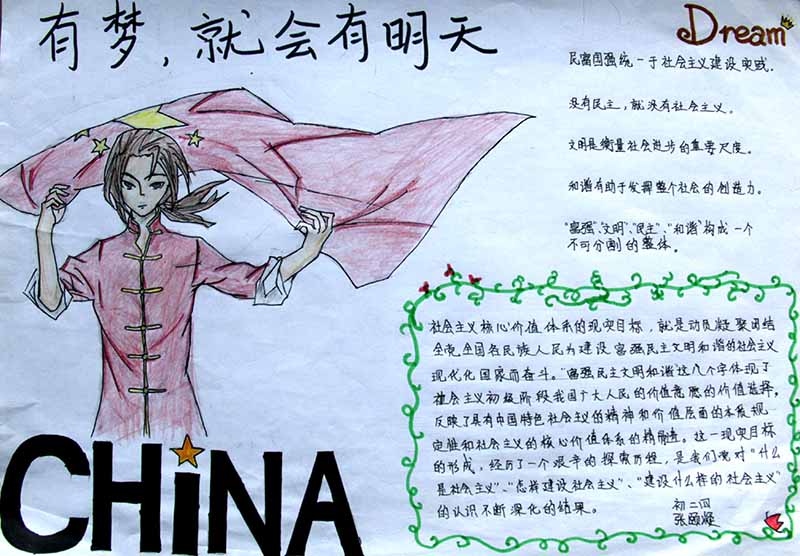 有梦，就会有明天
Dream
民富国强统一于社会主义建设实践.
没有民主，就没有社会主义。
文明是衡量社会进步的重要尺度。
和谐有助于发挥整个社会的创造力。
"富强"、"文明"、"民主"、"和谐"构成一个
不可分割的整体。
社会主义核心价值体系的现实目标，就是动员凝聚团结
全党全国各民族人民为建设富强民主文明和谐的社会主义
现代化国家而奋斗。"富强民主文明和谐"这几个字体现了
社会主义初级阶段我国广大人民的价值意愿的价值选择，
反映了具有中国特色社会主义的精神和价值层面的本质规
定性和社会主义的核心价值体系的精髓。这一现实目标
的形成，经历了一个艰辛的探索历程，是我们党对"什么
是社会主义"、"怎样建设社会主义"、"建设什么样的社会主义"
的认识不断深化的结果。
初二四
张颐凝
CHiNA